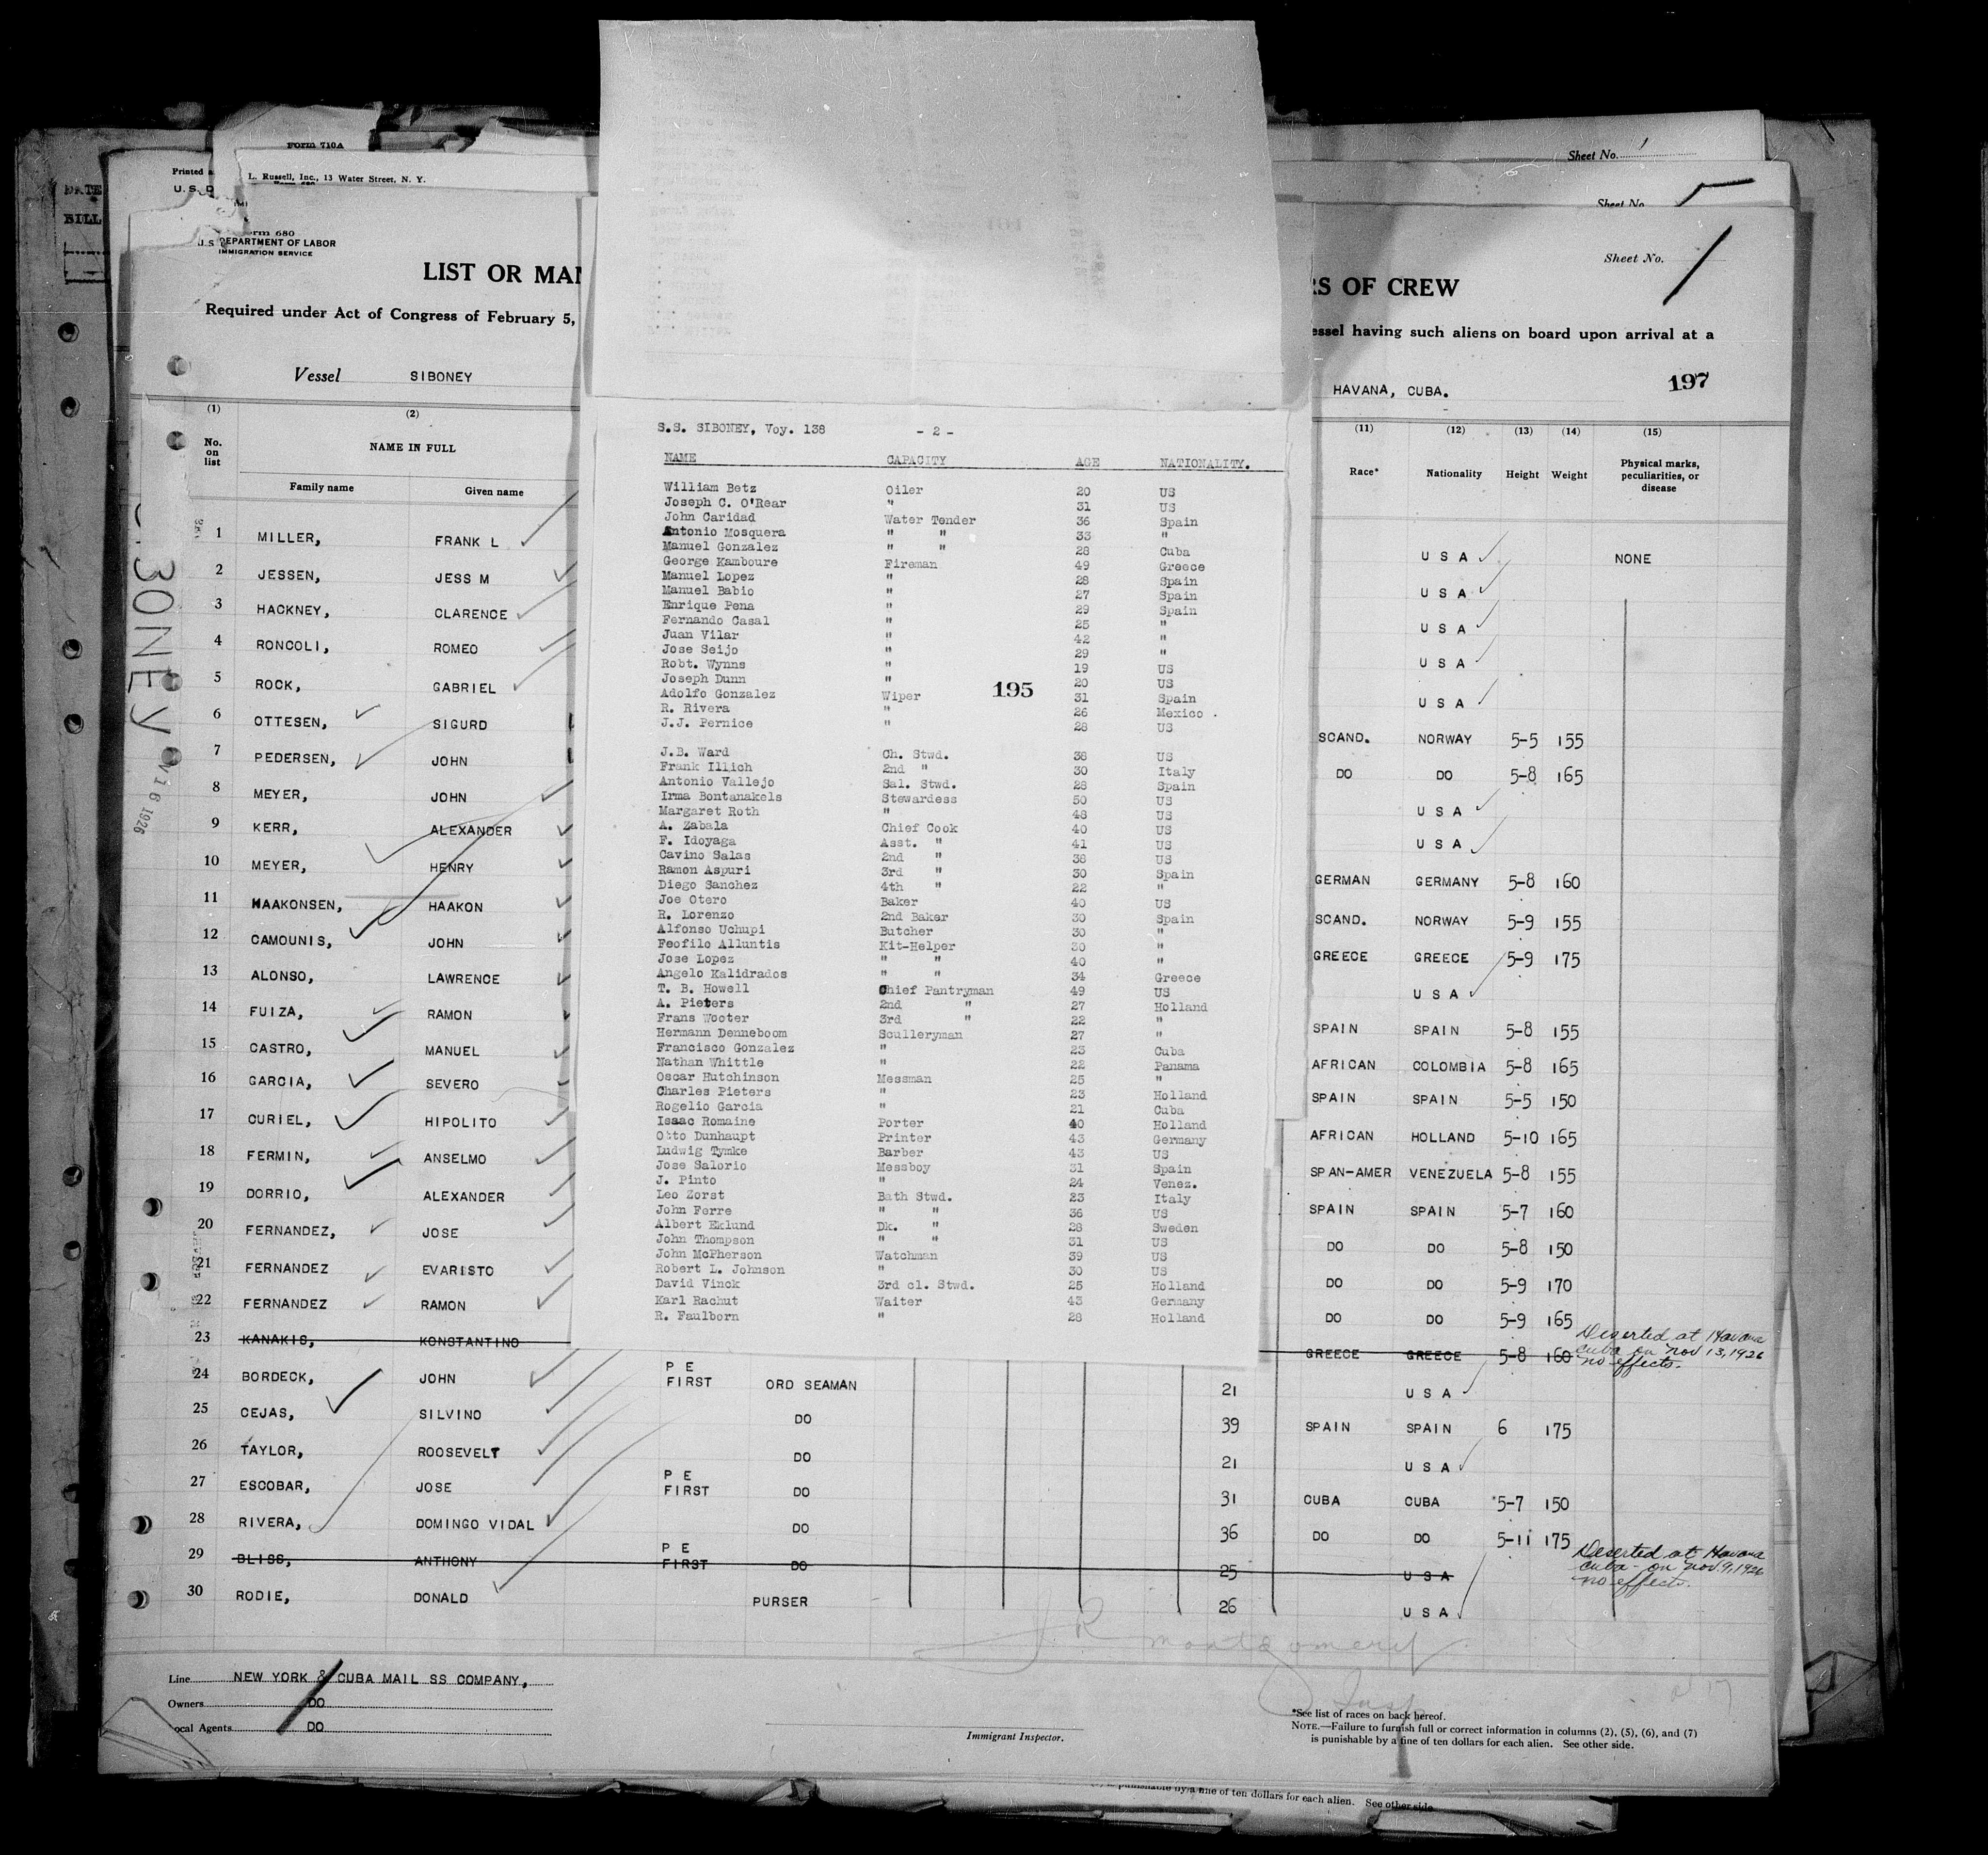 Form 710A
Sheet No. 1
Printed
L. Russell, Inc., 13 Water Street, N. Y.
U. S. D
DATE
BILL
Sheet No.
Form 680
U.S. DEPARTMENT OF LABOR
IMMIGRATION SERVICE
Sheet No. 1
LIST OR MAN
RS OF CREW
Required under Act of Congress of February 5,
essel having such aliens on board upon arrival at a
Vessel SIBONEY
HAVANA, CUBA.
197
(1) (2) (11) (12) (13) (14) (15)
No. on list NAME IN FULL Race* Nationality Height Weight Physical marks, peculiarities, or disease
Family name Given name
1 MILLER, FRANK L U S A NONE
2 JESSEN, JESS M U S A
3 HACKNEY, CLARENCE U S A
4 RONCOLI, ROMEO U S A
5 ROCK, GABRIEL U S A
6 OTTESEN, SIGURD SCAND. NORWAY 5-5 155
7 PEDERSEN, JOHN DO DO 5-8 165
8 MEYER, JOHN U S A
9 KERR, ALEXANDER U S A
10 MEYER, HENRY GERMAN GERMANY 5-8 160
11 HAAKONSEN, HAAKON SCAND. NORWAY 5-9 155
12 CAMOUNIS, JOHN GREECE GREECE 5-9 175
13 ALONSO, LAWRENCE U S A
14 FUIZA, RAMON SPAIN SPAIN 5-8 155
15 CASTRO, MANUEL AFRICAN COLOMBIA 5-8 165
16 GARCIA, SEVERO SPAIN SPAIN 5-5 150
17 CURIEL, HIPOLITO AFRICAN HOLLAND 5-10 165
18 FERMIN, ANSELMO SPAN-AMER VENEZUELA 5-8 155
19 DORRIO, ALEXANDER SPAIN SPAIN 5-7 160
20 FERNANDEZ, JOSE DO DO 5-8 150
21 FERNANDEZ EVARISTO DO DO 5-9 170
22 FERNANDEZ RAMON DO DO 5-9 165
23 KANAKIS, KONSTANTINO GREECE GREECE 5-8 160 Deserted at Havana
Cuba on Nov 13, 1926
no effects.
24 BORDECK, JOHN P E FIRST ORD SEAMAN 21 U S A
25 CEJAS, SILVINO DO 39 SPAIN SPAIN 6 175
26 TAYLOR, ROOSEVELT DO 21 U S A
27 ESCOBAR, JOSE P E FIRST DO 31 CUBA CUBA 5-7 150
28 RIVERA, DOMINGO VIDAL DO 36 DO DO 5-11 175
29 BLISS, ANTHONY P E FIRST DO 25 U S A Deserted at Havana
Cuba on Nov. 9, 1926
no effects.
30 RODIE, DONALD PURSER 26 U S A
J R Montgomery
Insp
Line NEW YORK & CUBA MAIL SS COMPANY,
Owners DO
Local Agents DO
Immigrant Inspector.
*See list of races on back hereof.
NOTE.—Failure to furnish full or correct information in columns (2), (5), (6), and (7)
is punishable by a fine of ten dollars for each alien. See other side.
is punishable by a fine of ten dollars for each alien. See other side
S.S. SIBONEY, Voy. 138 - 2 -
NAME CAPACITY AGE NATIONALITY.
William Betz Oiler 20 US
Joseph C. O'Rear " 31 US
John Caridad Water Tender 36 Spain
Antonio Mosquera " " 33 "
Manuel Gonzalez " " 28 Cuba
George Kamboure Fireman 49 Greece
Manuel Lopez " 28 Spain
Manuel Babio " 27 Spain
Enrique Pena " 29 Spain
Fernando Casal " 25 "
Juan Vilar " 42 "
Jose Seijo " 29 "
Robt. Wynns " 19 US
Joseph Dunn " 20 US
Adolfo Gonzalez Wiper 31 Spain
R. Rivera " 26 Mexico .
J.J. Pernice " 28 US
195
J.B. Ward Ch. Stwd. 38 US
Frank Illich 2nd " 30 Italy
Antonio Vallejo Sal. Stwd. 28 Spain
Irma Bontanakels Stewardess 50 US
Margaret Roth " 48 US
A. Zabala Chief Cook 40 US
F. Idoyaga Asst. " 41 US
Cavino Salas 2nd " 38 US
Ramon Aspuri 3rd " 30 Spain
Diego Sanchez 4th " 22 "
Joe Otero Baker 40 US
R. Lorenzo 2nd Baker 30 Spain
Alfonso Uchupi Butcher 30 "
Feofilo Alluntis Kit-Helper 30 "
Jose Lopez " " 40 "
Angelo Kalidrados " " 34 Greece
T. B. Howell Chief Pantryman 49 US
A. Pieters 2nd " 27 Holland
Frans Wooter 3rd " 22 "
Hermann Denneboom Sculleryman 27 "
Francisco Gonzalez " 23 Cuba
Nathan Whittle " 22 Panama
Oscar Hutchinson Messman 25 "
Charles Pieters " 23 Holland
Rogelio Garcia " 21 Cuba
Isaac Romaine Porter 40 Holland
Otto Dunhaupt Printer 43 Germany
Ludwig Tymke Barber 43 US
Jose Salorio Messboy 31 Spain
J. Pinto " 24 Venez.
Leo Zorst Bath Stwd. 23 Italy
John Ferre " " 36 US
Albert Eklund Dk. " 28 Sweden
John Thompson " " 31 US
John McPherson Watchman 39 US
Robert L. Johnson " 30 US
David Vinck 3rd cl. Stwd. 25 Holland
Karl Rachut Waiter 43 Germany
R. Faulborn " 28 Holland